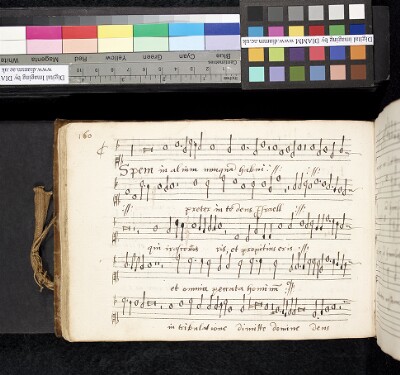 Blue Cyan Green Yellow Red Magenta White
Digital Imaging by DIAMM
www.diamm.ac.uk
Digital Imaging by DIAMM
www.diamm.ac.uk
160
Spem in alium
preter in te deus Israell
qui irasceris et propitius eris
et omnia peccata hominum
in tribulatione dimitte domine deus